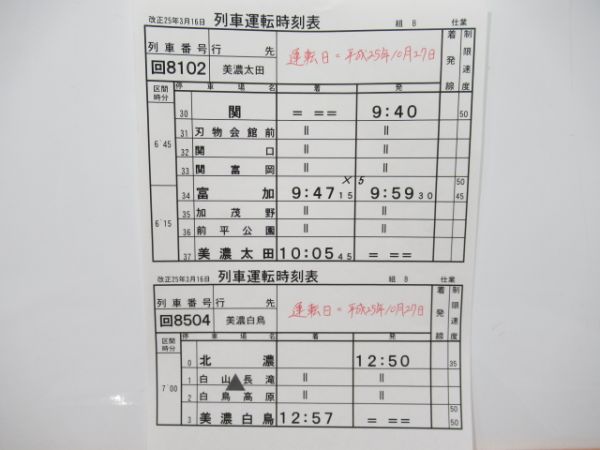 改正25年3月16日 列車運転時刻表 組 B 仕業
列車番号 行先 運転日=平成25年10月27日 着発線 制限速度
回8102 美濃太田
区間時分 停車場名 着 発
30 関 = == 9:40 50
31 刃物会館前 || ||
6'45 32 関口 || ||
33 関富岡 || ||
× 5 50
34 富加 9:47 15 9:59 30 45
35 加茂野 || ||
6'15 36 前平公園 || ||
37 美濃太田 10:05 45 = ==
改正25年3月16日 列車運転時刻表 組 B 仕業
列車番号 行先 運転日=平成25年10月27日 着発線 制限速度
回8504 美濃白鳥
区間時分 停車場名 着 発
0 北濃 12:50 35
7'00 1 白山▲長滝 || ||
2 白鳥高原 || ||
50
3 美濃白鳥 12:57 = == 50